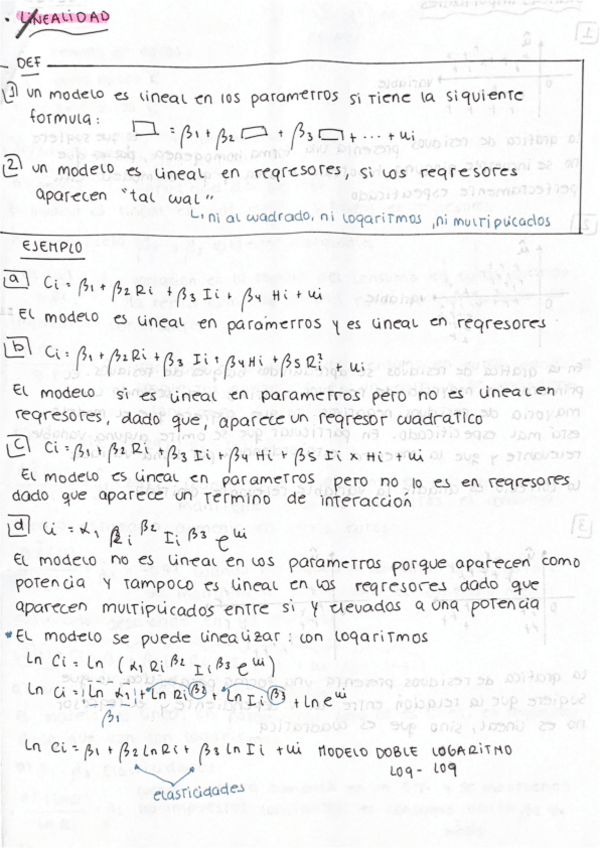 · LINEALIDAD
DEF
1 un modelo es lineal en los parametros si tiene la siguiente
formula:
▭ = β1 + β2 ▭ + β3 ▭ + ... + ui
2 un modelo es lineal en regresores, si los regresores
aparecen "tal cual"
↳ ni al cuadrado, ni logaritmos, ni multiplicados
EJEMPLO
a Ci = β1 + β2 Ri + β3 Ii + β4 Hi + ui
El modelo es lineal en parámetros y es lineal en regresores
b Ci = β1 + β2 Ri + β3 Ii + β4 Hi + β5 Ri² + ui
El modelo si es lineal en parametros pero no es lineal en
regresores, dado que, aparece un regresor cuadratico
c Ci = β1 + β2 Ri + β3 Ii + β4 Hi + β5 Ii x Hi + ui
El modelo es lineal en parametros pero no lo es en regresores
dado que aparece un termino de interacción
d Ci = α1 Ri^β2 Ii^β3 e^ui
El modelo no es lineal en los parametros porque aparecen como
potencia y tampoco es lineal en los regresores dado que
aparecen multiplicados entre si y elevados a una potencia
* El modelo se puede linealizar: con logaritmos
ln Ci = ln (α1 Ri^β2 Ii^β3 e^ui)
ln Ci = ln α1 + ln Ri^β2 + ln Ii^β3 + ln e^ui
β1
ln Ci = β1 + β2 ln Ri + β3 ln Ii + ui MODELO DOBLE LOGARITMO
log - log
elasticidades